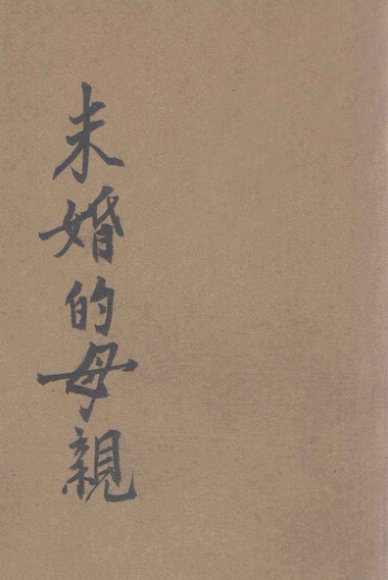 未婚的母親